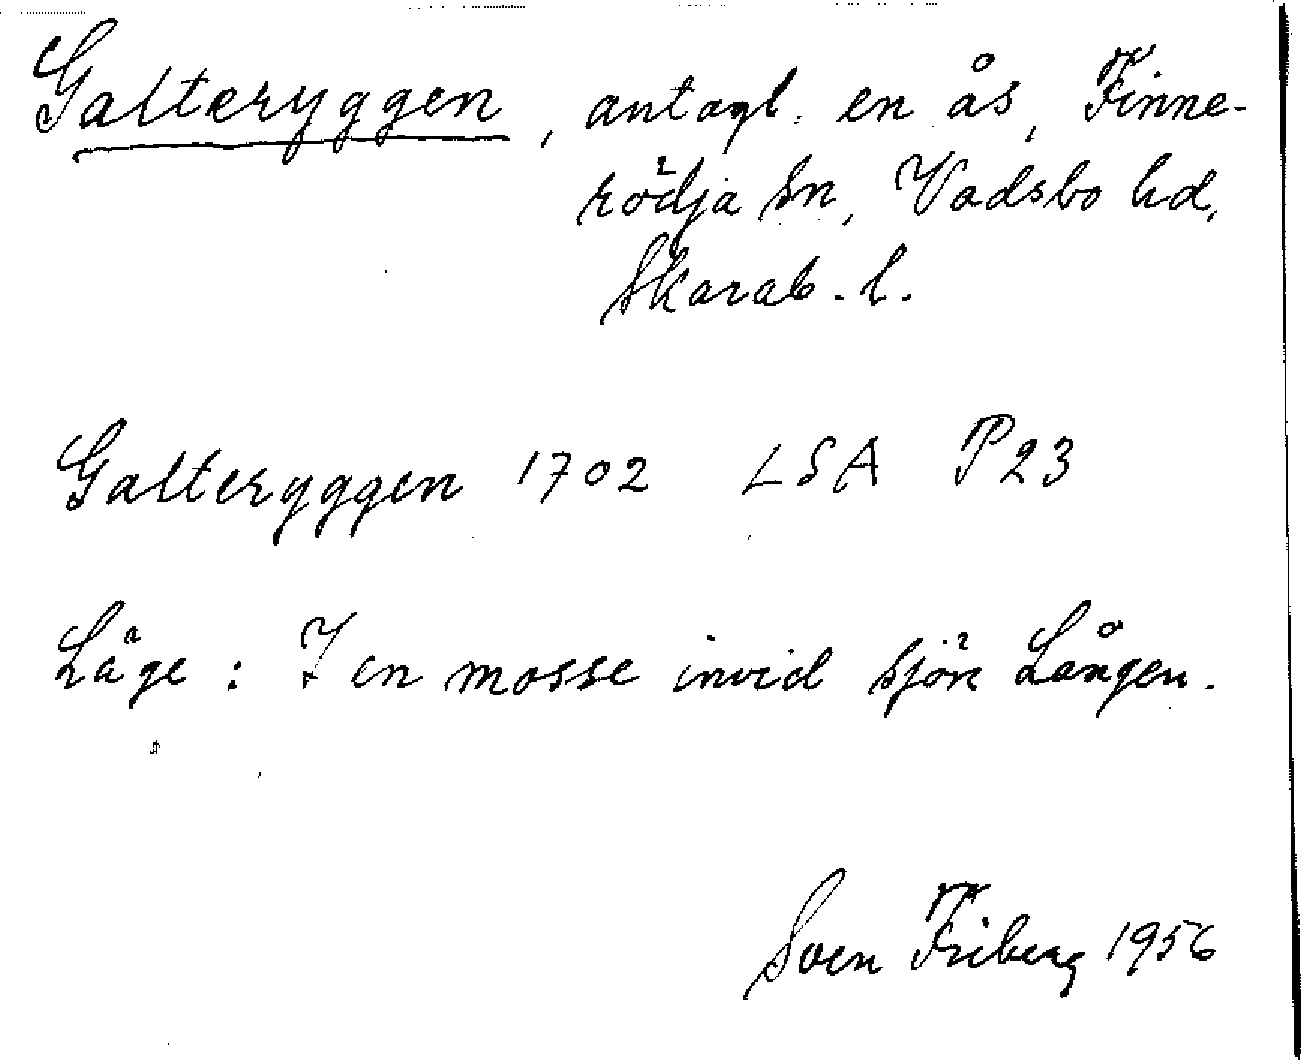 Galteryggen, antagl. en ås, Finne-
rödja sn, Vadsbo hd,
Skarab. l.
Galteryggen 1702 LSA P23
Läge: I en mosse invid sjön Lången.
Sven Friberg 1956